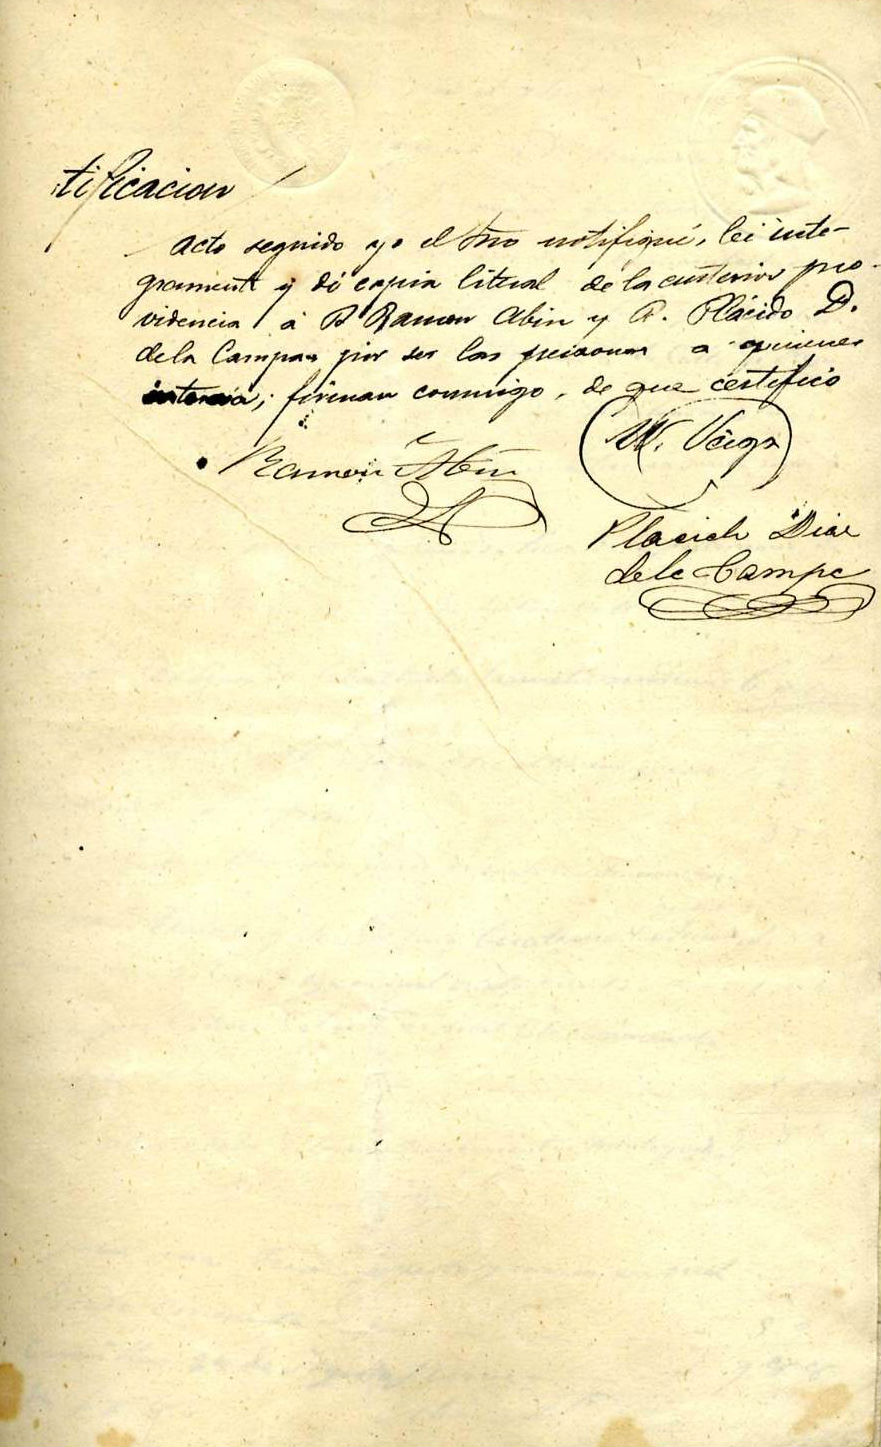 tificacion
Acto seguido yo el Srio notifiqué, lei inte-
gramente y dí copia literal de la anterior pro-
videncia á D Ramon Abin y D. Plácido D.
de la Campa por ser las personas a quienes
interesa; firman conmigo, de que certifico
M. Veiga
Ramon Abin
Placido Diaz
de la Campa